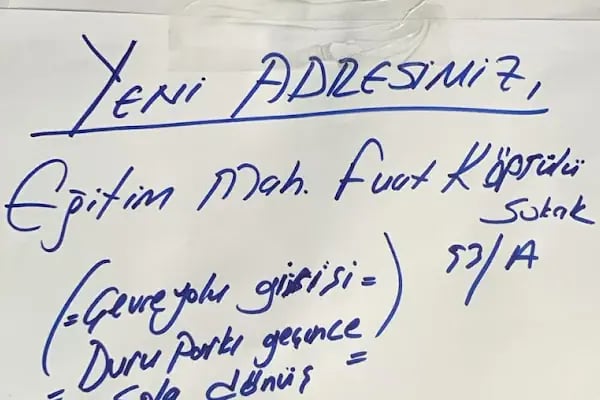 YENİ ADRESİMİZ,
Eğitim Mah. Fuat Köprülü
Sokak
53/A
(=Çevreyolu girişi=)
Duru Parkı geçince
= Sola dönüş =